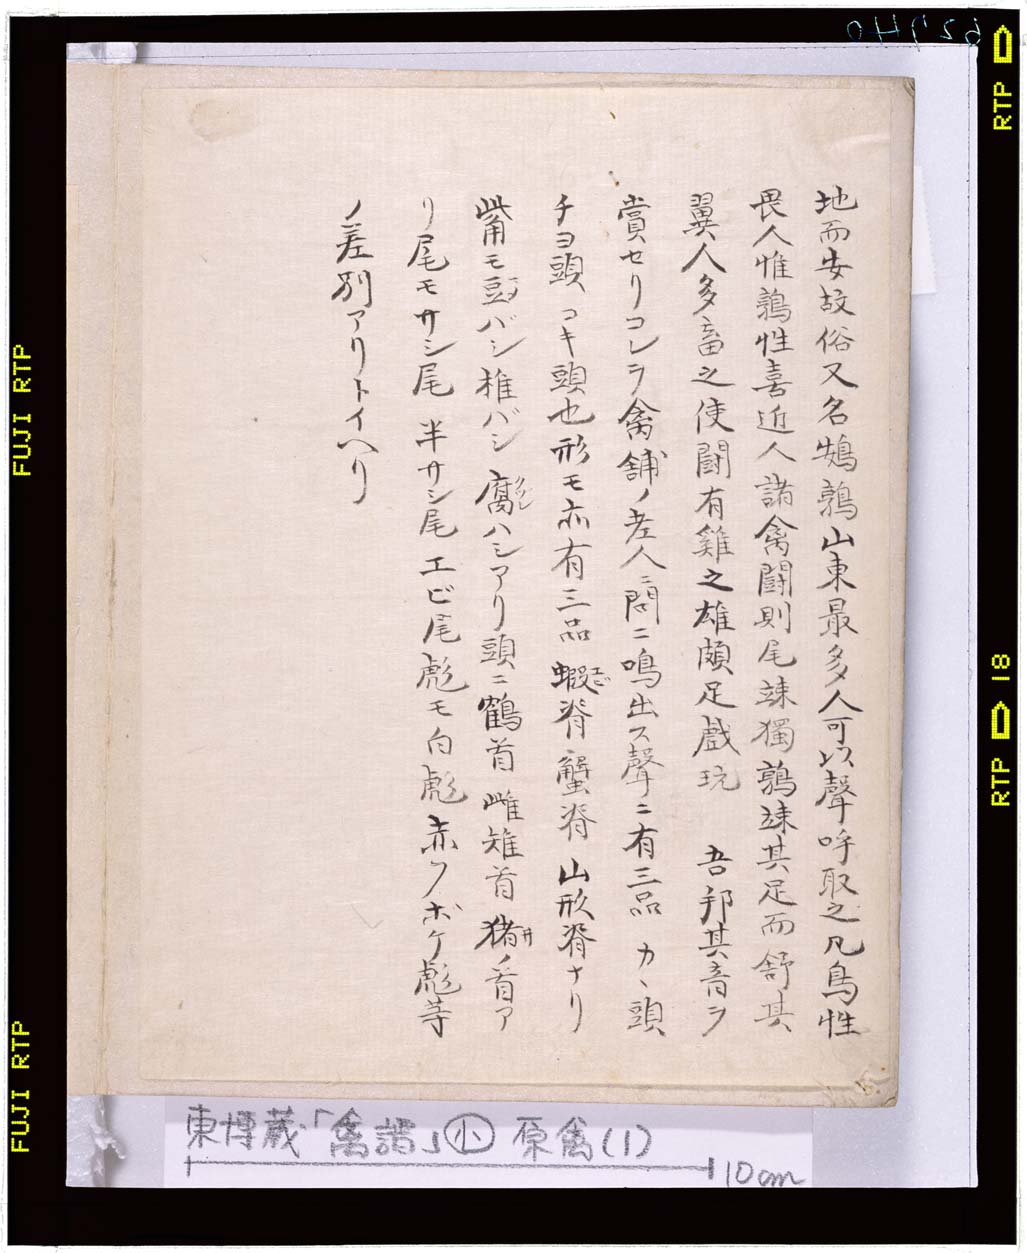 地而安故俗又名鴳鶉山東最多人可以聲呼取之凡鳥性
畏人惟鶉性喜近人諸禽闘則尾竦獨鶉竦其足而舒其
翼人多畜之使闘有雞之雄頗足戯玩　吾邦其音ヲ
賞セリコレヲ禽舗ノ老人ニ問ニ鳴出ス聲ニ有三品　カヽ頭
チヨ頭　コキ頭也形モ亦有三品　蝦エビ脊　蟹脊　山形脊ナリ
觜モ豆マメバシ　椎バシ　腐クサレハシアリ頭ニ鶴首　雌雉首　猪井ノ首ア
リ尾モサシ尾　半サシ尾　エビ尾彪モ白彪　赤フ　ボケ彪等
ノ差別アリトイヘリ
東博蔵「禽譜」小　原禽(1)
10cm
FUJI RTP
FUJI RTP
RTP
18
RTP